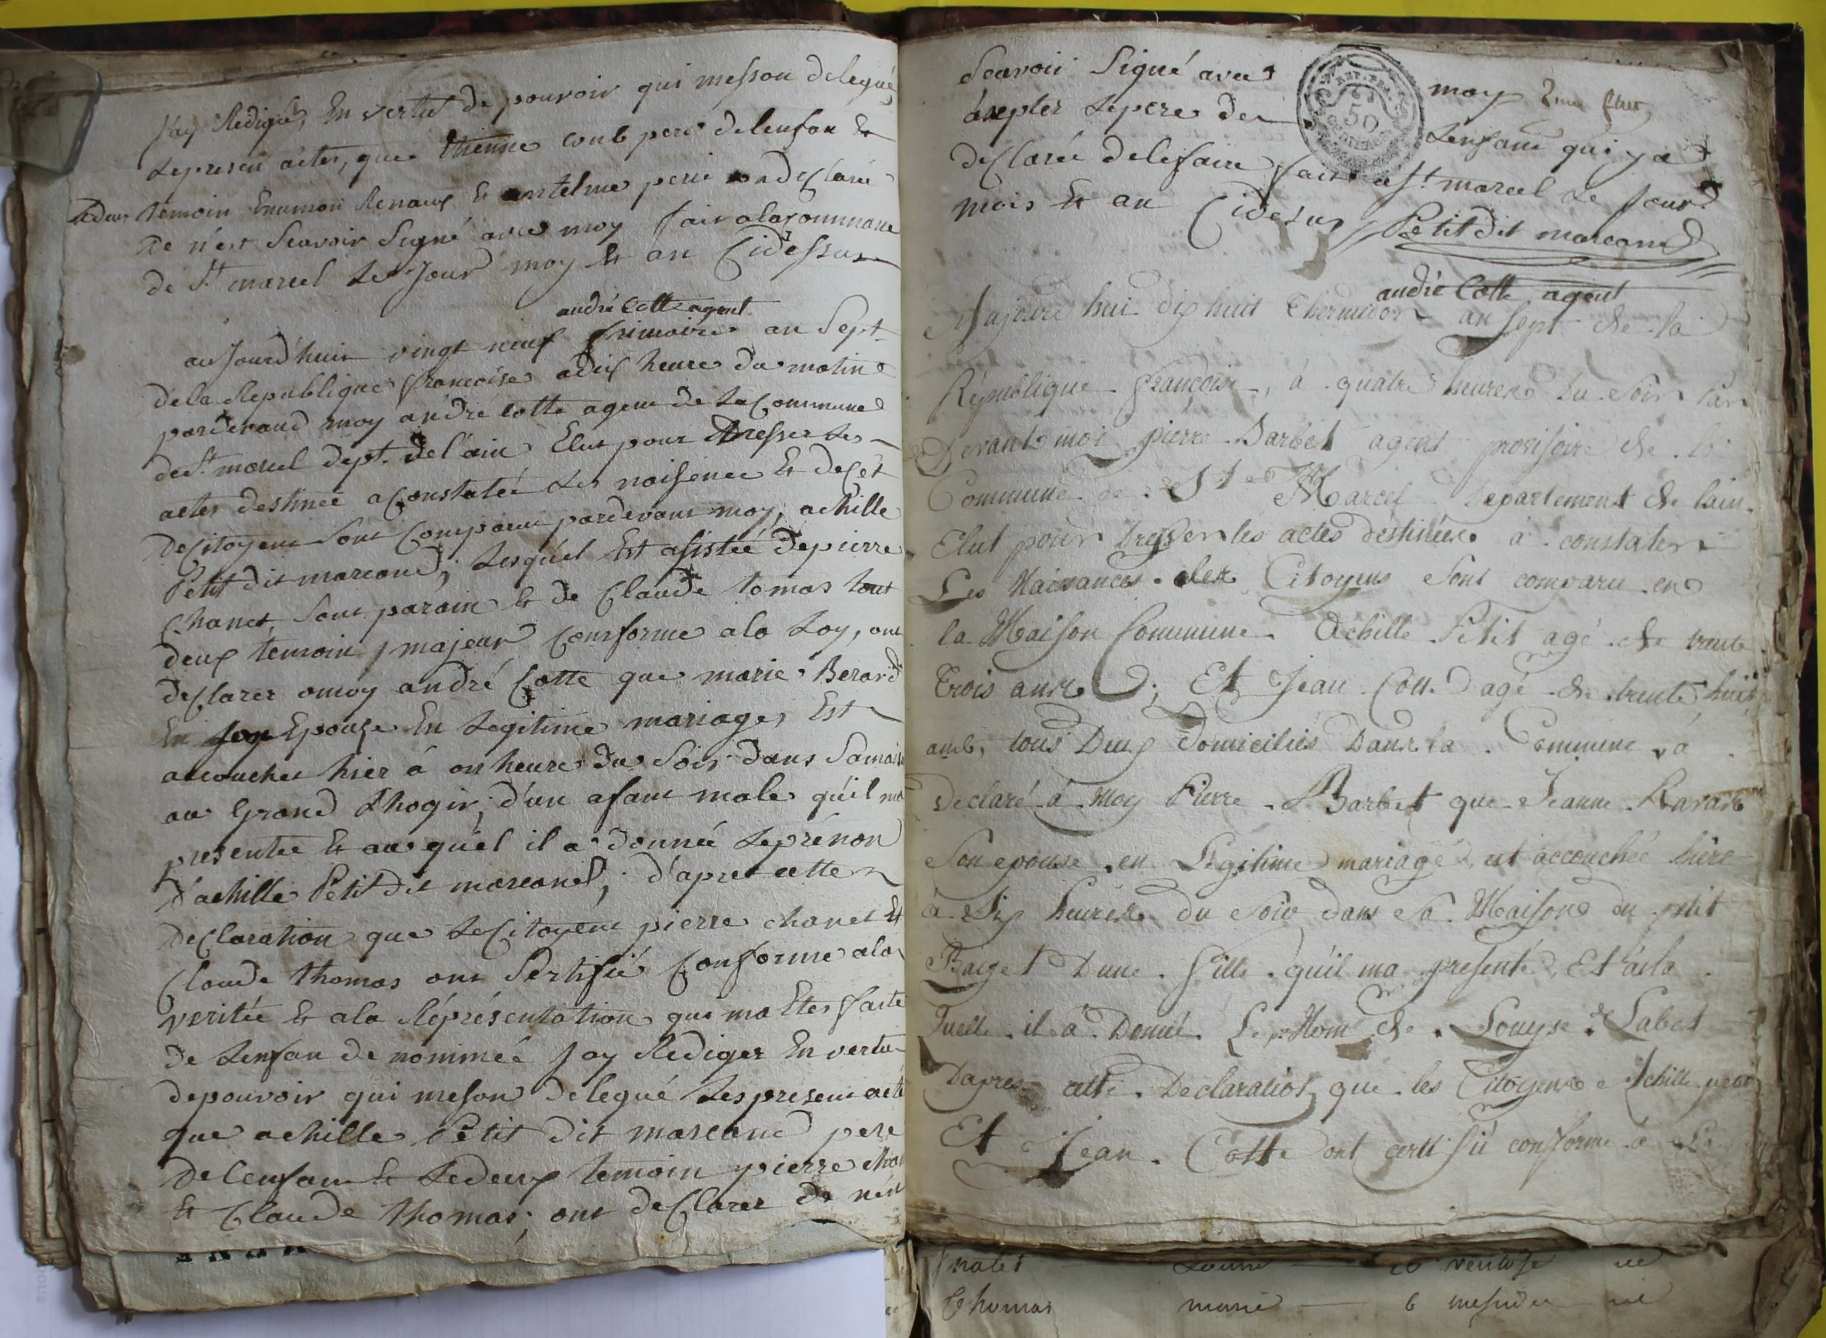 jay Redigé, En vertu de pouvoir qui messon delegué,
Lepresen actes, que Etienne coub pere delenfan &
Ledeux temoin Enemon Renaux & antelme perie on declaré
De n'est Scavoir Signé avec moy fair alacommune
de St marcel Le Jour moy & an Cidessus
andré Cotte agent
aujourd'huir vingt neuf frimaire an Sept
dela Republique francoise adix heure du matin
pardevand moy andré cotte agene de La Commune
de St marcel dept. de l'ain Elus pour dresser Les
actes destinée a Constatée Les naisence & decét
DeCitoyens Sont Comparue pardevant moy, achille
Petit dit marcand, Lesquel Est asistée de pierre
Chanet Sont parain & de Claude tomas tout
deux temoin majeur Comforme ala Loy, ont
declarer amoy andré Cotte que marie Berard
En son Epouse En Legitime mariage, Est
acouchee hier á on heure du Soir dans Samaison
au Grand Thogir, d'un afant male qu'il ma
presentée & au quél il a donnée Leprénon
d'achille Petit dit marcand, d'apret cette
Declaration que LeCitoyens pierre chanet &
Claude thomas ont Sertifié Conforme ala
veritée & ala Réprésentation qui ma Etes faite
de Lenfan de nommée jay Rediger En vertu
depouvoir qui meson delegué Lespresens acte
que achille Petit dit marcand pere
De lenfant & Ledeux temoin pierre chan
& Claude thomas, ont deClarer de nen
Scavoir Signé avec moy
acepter Lepere de Lenfant qui ya
deClarée delefaire fait a St marcel Le Jour
mois & an Cidesus Petit dit marcand
andré Cotte agent
Ajourd'hui dix huit Thermidor an sept de la
République françoise, à quatre heures du soir par
Devant moi pierre Barbet agent provisoire de la
Commune de St Marcel Departement de lain
Elut pour Dresser les actes destinées a constater
Les Naissances des Citoyens sont comparu en
la Maison Commune Achille Petit agé de trente
Trois ans Et Jean Cotte agé de trente huit
ans, tous Deux domiciliés Dans la Commune à
Declaré à Moy Pierre Barbet que Jeanne
Son epouse en Legitime mariage est accouchée hiere
à Six heures du soir dans sa Maison du petit
D'une fille qu'il ma presenté Et àla
quelle il à Donné Le pNom de Louyse
Dapres cette Declaration que les Citoyens Achille petit
Et Jean Cotte ont certifié conforme à La
ventose
Thomas marie 6 mesidor